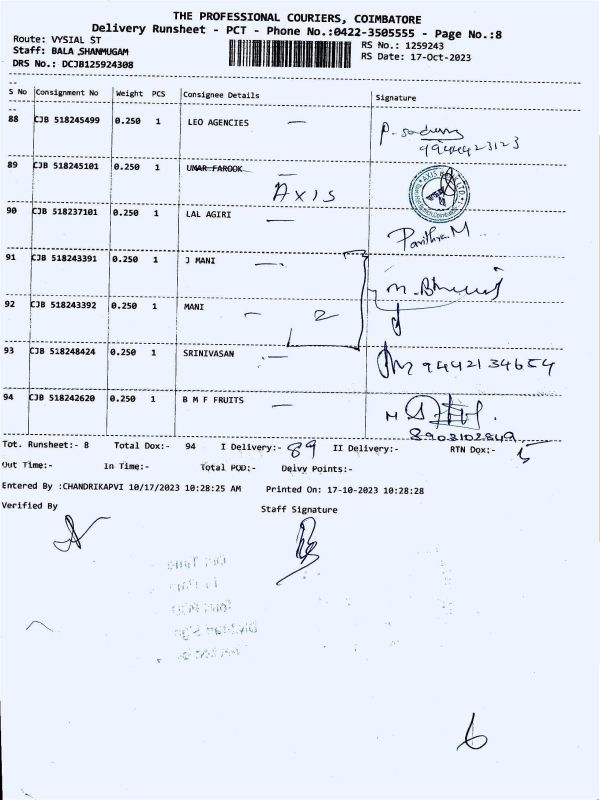 THE PROFESSIONAL COURIERS, COIMBATORE
Delivery Runsheet - PCT - Phone No.:0422-3505555 - Page No.:8
Route: VYSIAL ST RS No.: 1259243
Staff: BALA SHANMUGAM RS Date: 17-Oct-2023
DRS No.: DCJB125924308
S No Consignment No Weight PCS Consignee Details Signature
88 CJB 518245499 0.250 1 LEO AGENCIES
9944423123
89 CJB 518245101 0.250 1 UMAR FAROOK
AXIS
90 CJB 518237101 0.250 1 LAL AGIRI
Pavithra M
91 CJB 518243391 0.250 1 J MANI
92 CJB 518243392 0.250 1 MANI 2
93 CJB 518248424 0.250 1 SRINIVASAN 9442134654
94 CJB 518242620 0.250 1 B M F FRUITS
8903102849
Tot. Runsheet:- 8 Total Dox:- 94 I Delivery:- 89 II Delivery:- RTN Dox:- 5
Out Time:- In Time:- Total POD:- Delvy Points:-
Entered By :CHANDRIKAPVI 10/17/2023 10:28:25 AM Printed On: 17-10-2023 10:28:28
Verified By Staff Signature
6